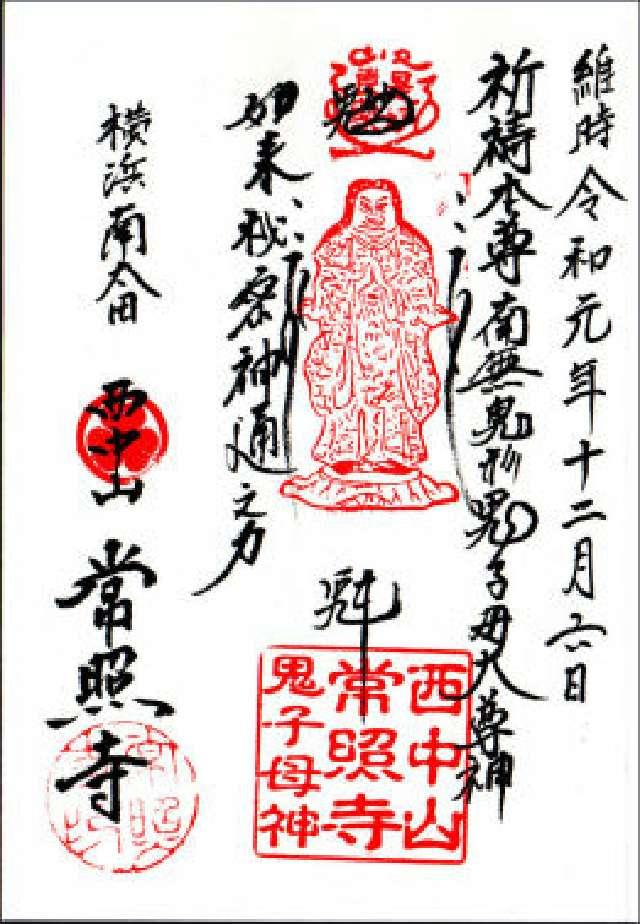 維時令和元年十二月六日
祈祷本尊南無鬼形鬼子母大尊神
如来秘密神通之力
横浜南太田
西中山
常照寺
西中山
常照寺
鬼子母神